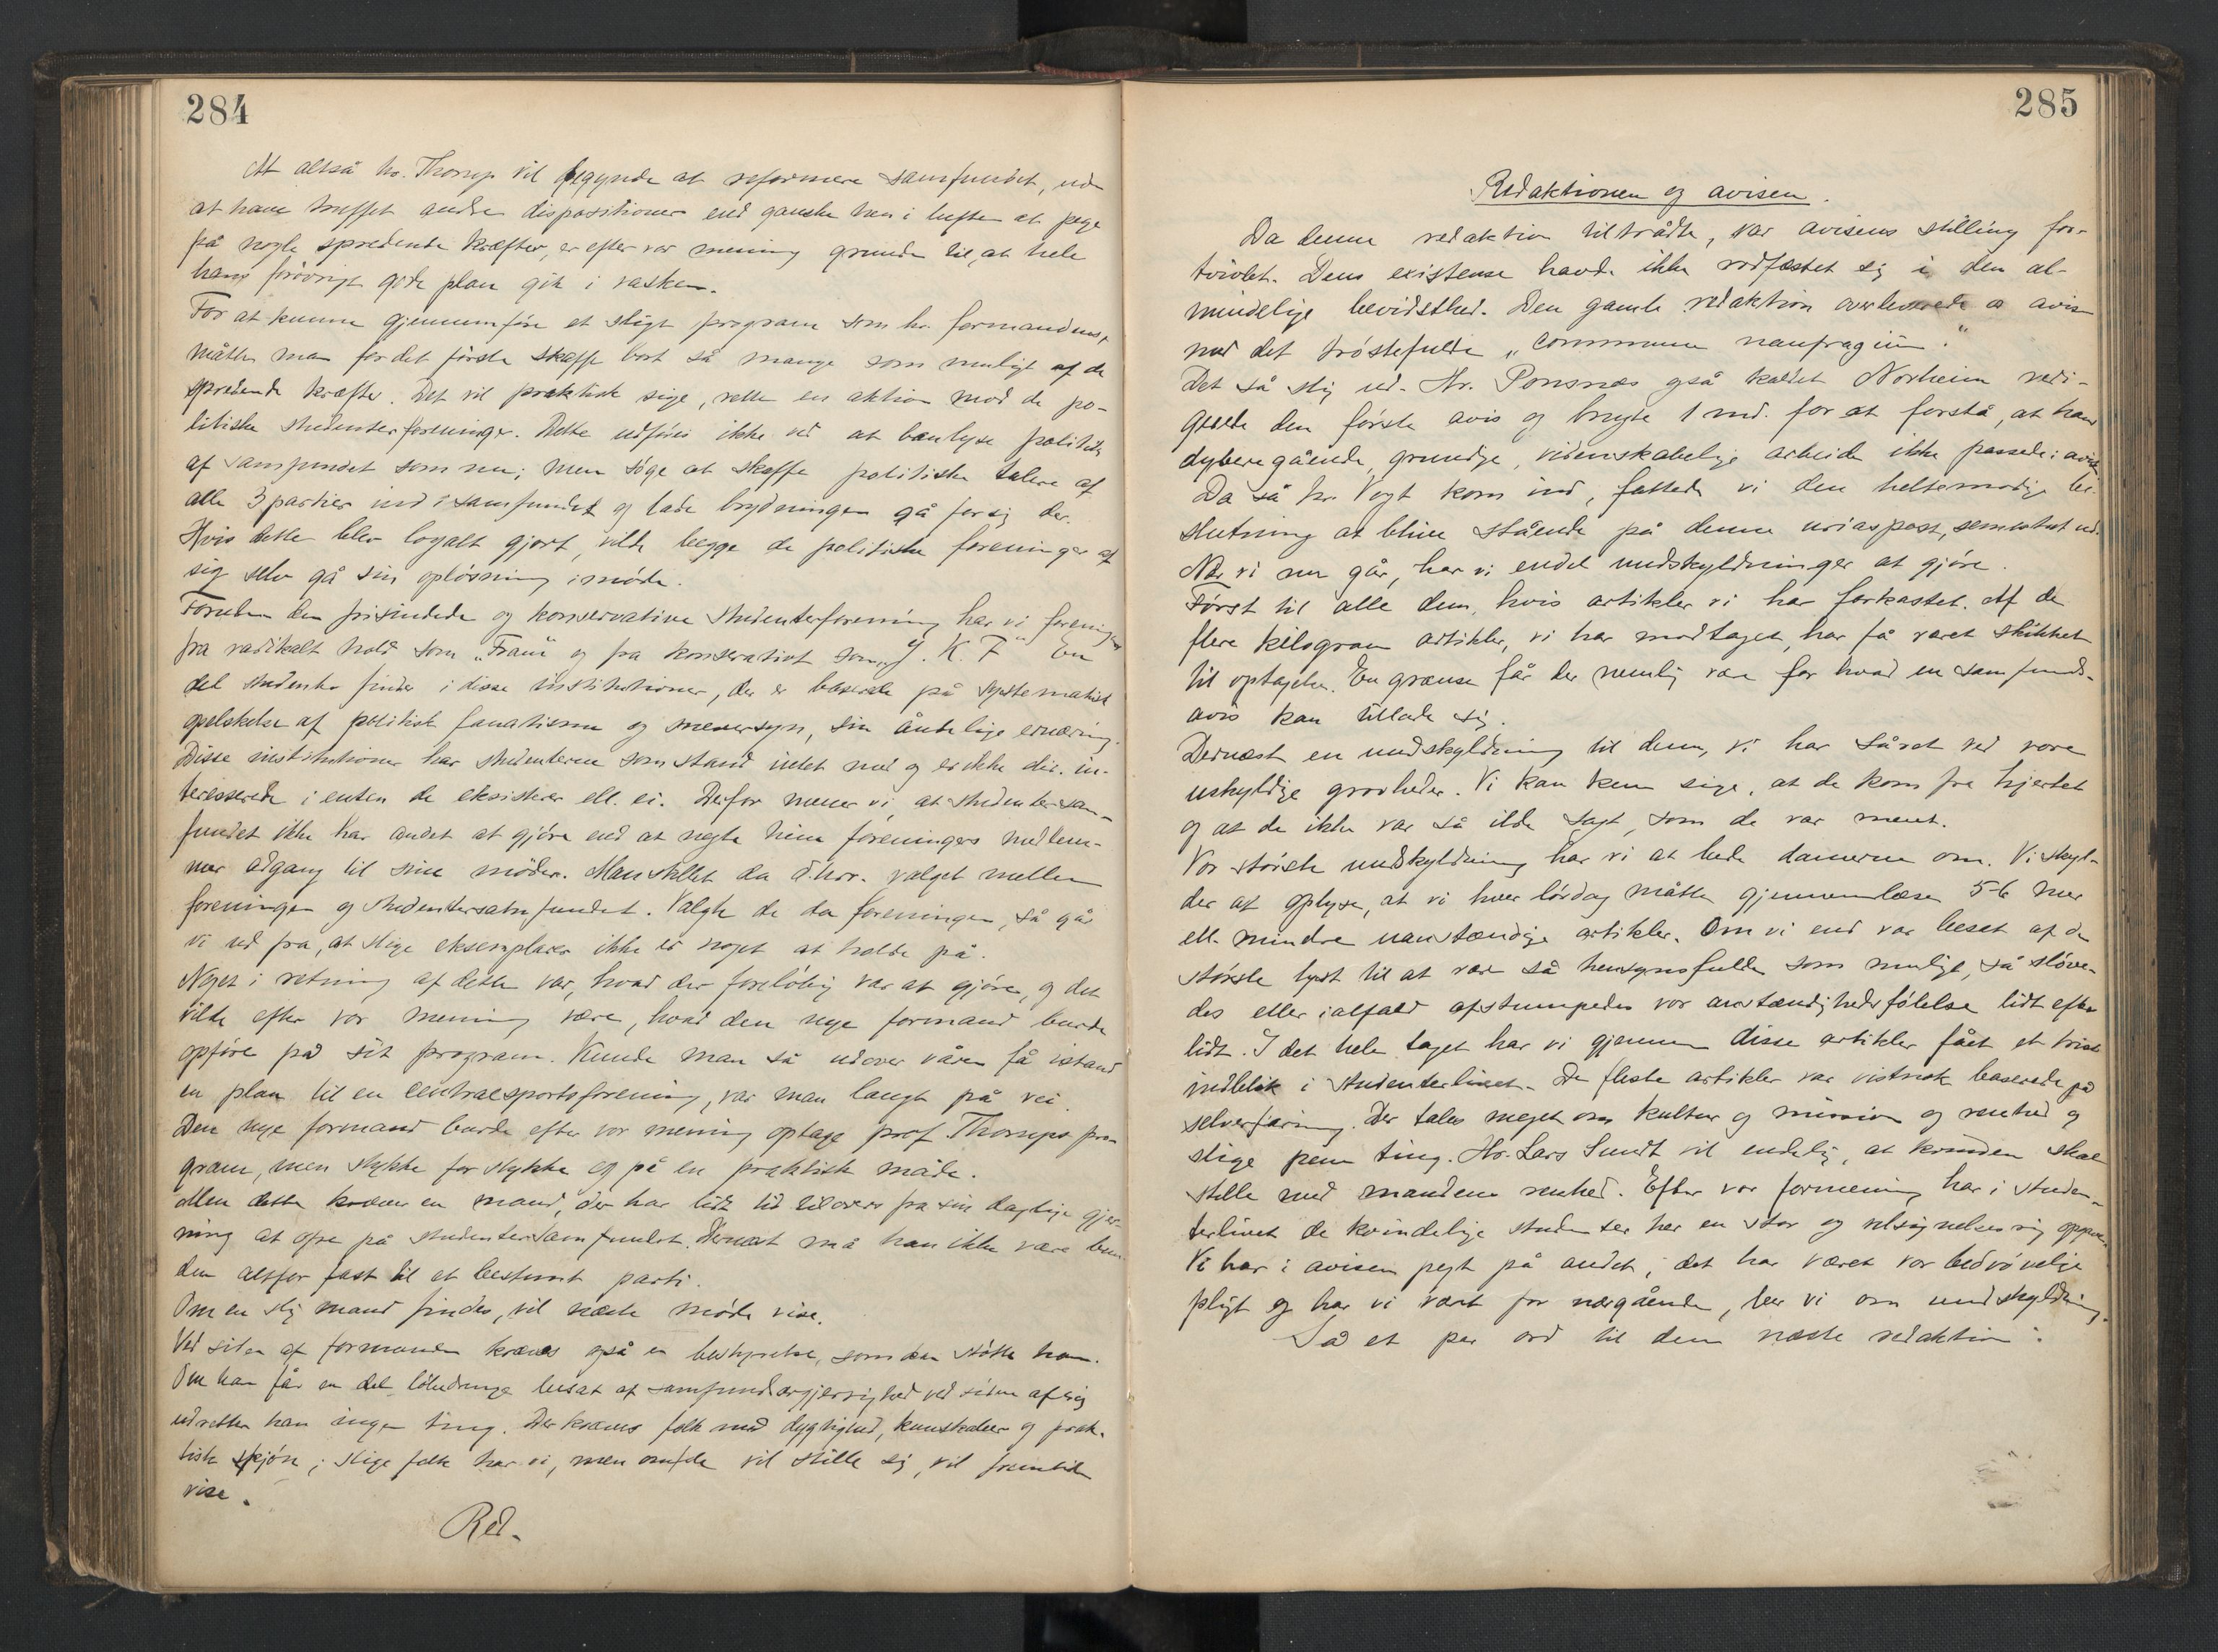 284
At altså hr. Thorup vil begynde at reformere samfundet, uden
at have truffet andre dispositioner end ganske hen i luften at pege
på nogle spredende kræfter, er efter vor mening grunden til, at hele
hans forøvrigt gode plan gik i vasken.
For at kunne gjennemføre et sligt program som hr. formandens,
måtte man for det første skaffe bort så mange som muligt af de
spredende kræfter. Det vil praktisk sige, rette en aktion mod de po-
litiske studenterforeninger. Dette udføres ikke ved at banlyse politik
af samfundet som nu; men søge at skaffe politiske talere af
alle 3 partier ind i samfundet og lade brydningen gå for sig der.
Hvis dette blev loyalt gjort, vilde begge de politiske foreninger af
sig selv gå sin opløsning imøde.
Foruden den frisindede og konservative studenterforening har vi foreninger
fra radikalt hold som „Fram" og fra konservativt som „J. K. F" En
del studenter finder i disse institutioner, der er baserede på systematisk
opelskelse af politisk fanatisme og snæversyn, sin åndelige ernæring.
Disse institutioner har studenterne som stand intet med og er ikke dir. in-
teresserede i enten de eksisterer ell. ei. Derfor mener vi, at studentersam-
fundet ikke har andet at gjøre end at negte hine foreningers medlem-
mer adgang til sine møder. Man stillet da d'hrr. valget mellem
foreningen og studentersamfundet. Valgte de da foreningen, så går
vi ud fra, at slige eksemplarer ikke er noget at holde på.
Noget i retning af dette var, hvad der foreløbig var at gjøre, og det
vilde efter vor mening være, hvad den nye formand burde
opføre på sit program. Kunde man så udover våren få istand
en plan til en centralsportsforening, var man langt på vei.
Den nye formand burde efter vor mening optage prof. Thorups pro-
gram, men stykke for stykke og på en praktisk måde.
Men dette kræver en mand, der har lidt tid tilovers fra sin daglige gjer-
ning at ofre på studentersamfundet. Dernæst må han ikke være bun-
den altfor fast til et bestemt parti.
Om en slig mand findes, vil næste møde vise.
Ved siden af formanden kræves også en bestyrelse, som kan støtte ham.
Om han får en del besat af samfundsærgjerrighed ved siden af sig
udretter han ingen ting. Der kræves folk med dygtighed, kunskaber og prak-
tisk skjøn; slige folk har vi, men om de vil stille sig, vil fremtiden
vise.
Red.
285
Redaktionen og avisen.
Da denne redaktion tiltrådte, var avisens stilling for-
tvivlet. Dens existense havde ikke rodfæstet sig i den al-
mindelige bevidsthed. Den gamle redaktion overleverede os avisen
med det trøstefulde „commune naufragium".
Det så slig ud. Hr. Ponsnæs også kaldet Norheim redi-
gerede den første avis og brugte 1 md. for at forstå, at hans
dyberegående, grundige, videnskabelige arbeide ikke passede i avisen
Da så hr. Vogt kom ind, fattede vi den heltemodige be-
slutning at blive stående på denne uriaspost, semestret ud.
Når vi nu går, har vi endel undskyldninger at gjøre.
Først til alle dem, hvis artikler vi har forkastet. Af de
flere kilogram artikler, vi har modtaget, har få været skikket
til optagelse. En grænse får der nemlig være for hvad en samfunds-
avis kan tillade sig.
Dernæst en undskyldning til dem, vi har såret ved vore
uskyldige grovheder. Vi kan kun sige, at de kom fra hjertet
og at de ikke var så ilde sagt, som de var ment.
Vor største undskyldning har vi at bede damerne om. Vi skyl-
der at oplyse, at vi hver lørdag måtte gjennemlæse 5-6 mer
ell. mindre uanstændige artikler. Om vi end var besat af den
største lyst til at være så hensynsfulde som muligt, så sløve-
des eller ialfald afstumpedes vor anstændighedsfølelse lidt efter
lidt. I det hele taget har vi gjennem disse artikler fået et trist
indblik i studenterlivet. De fleste artikler var vistnok baserede på
selverfaring. Der tales meget om kultur og mission og renhed og
slige pene ting. Hr. Lars Sundt vil endelig, at kvinden skal
stille med mandens renhed. Efter vor formening har i studen-
terlivet de kvindelige studenter her en stor og velsignelsesrig opgave.
Vi har i avisen pegt på andet; det har været vor bedrøvelige
pligt og har vi vært for nærgående, ber vi om undskyldning.
Så et par ord til den næste redaktion.